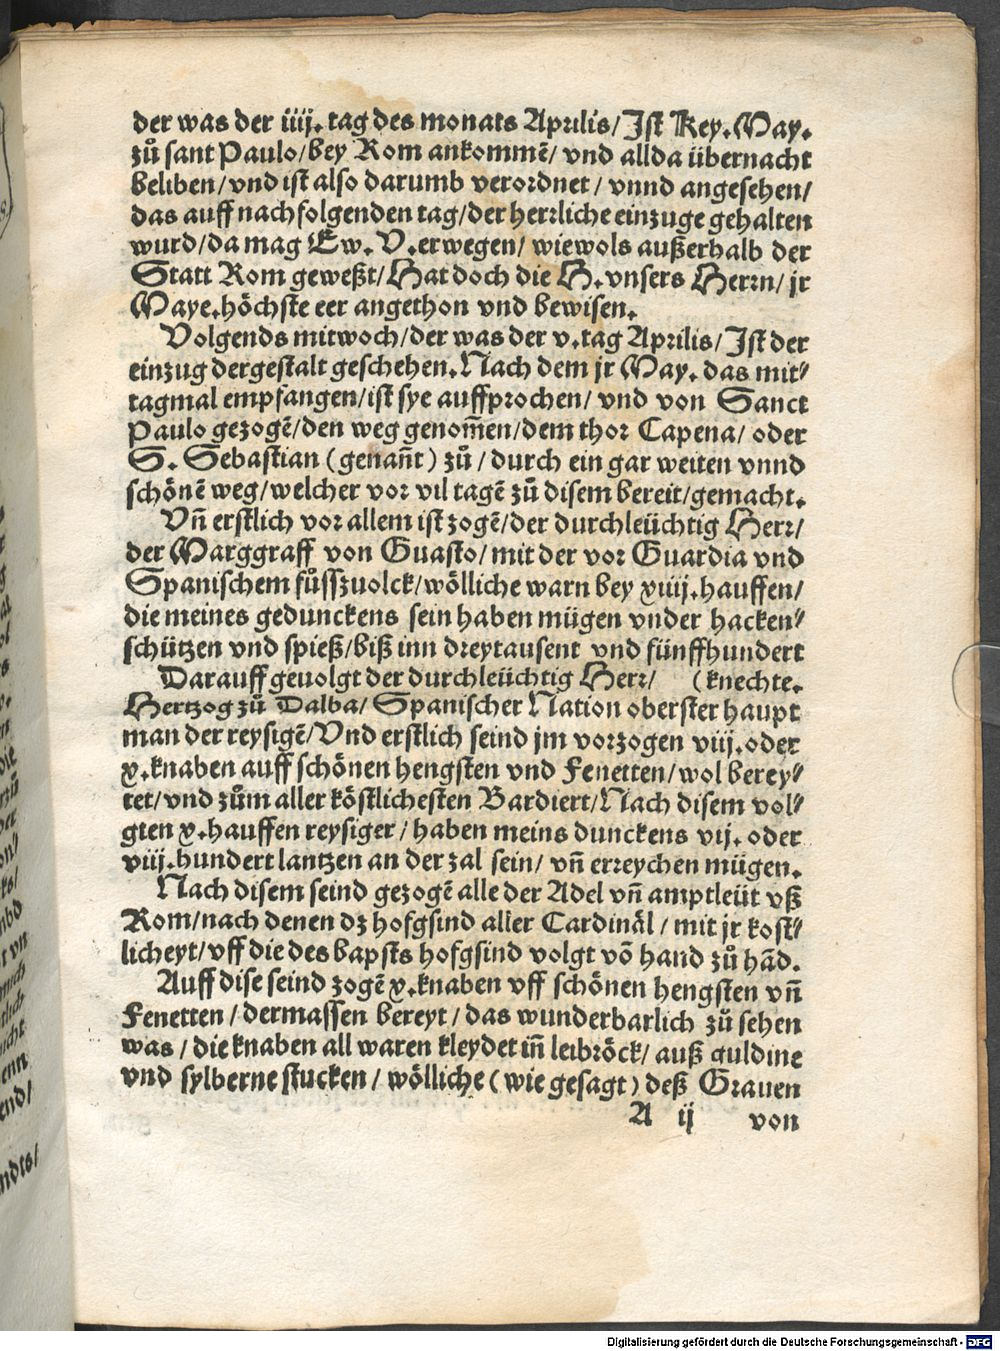 der was der iiij. tag des monats Aprilis/ Ist Key. May.
zů sant Paulo/ bey Rom ankommẽ/ vnd allda übernacht
beliben/ vnd ist also darumb verordnet/ vnnd angesehen/
das auff nachfolgenden tag/ der herrliche einzuge gehalten
wurd/ da mag Ew. V. erwegen/ wiewols außerhalb der
Statt Rom geweßt/ Hat doch die H. vnsers Herrn/ jr
Maye. höchste eer angethon vnd bewisen.
Volgends mitwoch/ der was der v. tag Aprilis/ Ist der
einzug dergestalt geschehen. Nach dem jr May. das mit⸗
tagmal empfangen/ ist sye auffprochen/ vnd von Sanct
Paulo gezogẽ/ den weg genom̃en/ dem thor Capena/ oder
S. Sebastian (genañt) zů/ durch ein gar weiten vnnd
schönẽ weg/ welcher vor vil tagẽ zů disem bereit/ gemacht.
Vñ erstlich vor allem ist zogẽ/ der durchleüchtig Herr/
der Marggraff von Guasto/ mit der vor Guardia vnd
Spanischem fůsszuolck/ wölliche warn bey xiiij. hauffen/
die meines gedunckens sein haben mügen vnder hacken⸗
schützen vnd spieß/ biß inn dreytausent vnd fünffhundert
Darauff geuolgt der durchleüchtig Herr/ (knechte.
Hertzog zů Dalba/ Spanischer Nation oberster haupt
man der reysigẽ/ Vnd erstlich seind jm vorzogen viij. oder
x. knaben auff schönen hengsten vnd Fenetten/ wol berey⸗
tet/ vnd zům aller köstlichesten Bardiert/ Nach disem vol⸗
gten x. hauffen reysiger/ haben meins dunckens vij. oder
viij. hundert lantzen an der zal sein/ vñ erreychen mügen.
Nach disem seind gezogẽ alle der Adel vñ amptleüt vß
Rom/ nach denen dz hofgsind aller Cardinäl/ mit jr kost⸗
licheyt/ vff die des bapsts hofgsind volgt võ hand zů hãd.
Auff dise seind zogẽ x. knaben vff schönen hengsten vñ
Fenetten/ dermassen bereyt/ das wunderbarlich zů sehen
was/ die knaben all waren kleydet iñ leibröck/ auß guldine
vnd sylberne stucken/ wölliche (wie gesagt) deß Grauen
A ij von
Digitalisierung gefördert durch die Deutsche Forschungsgemeinschaft - DFG